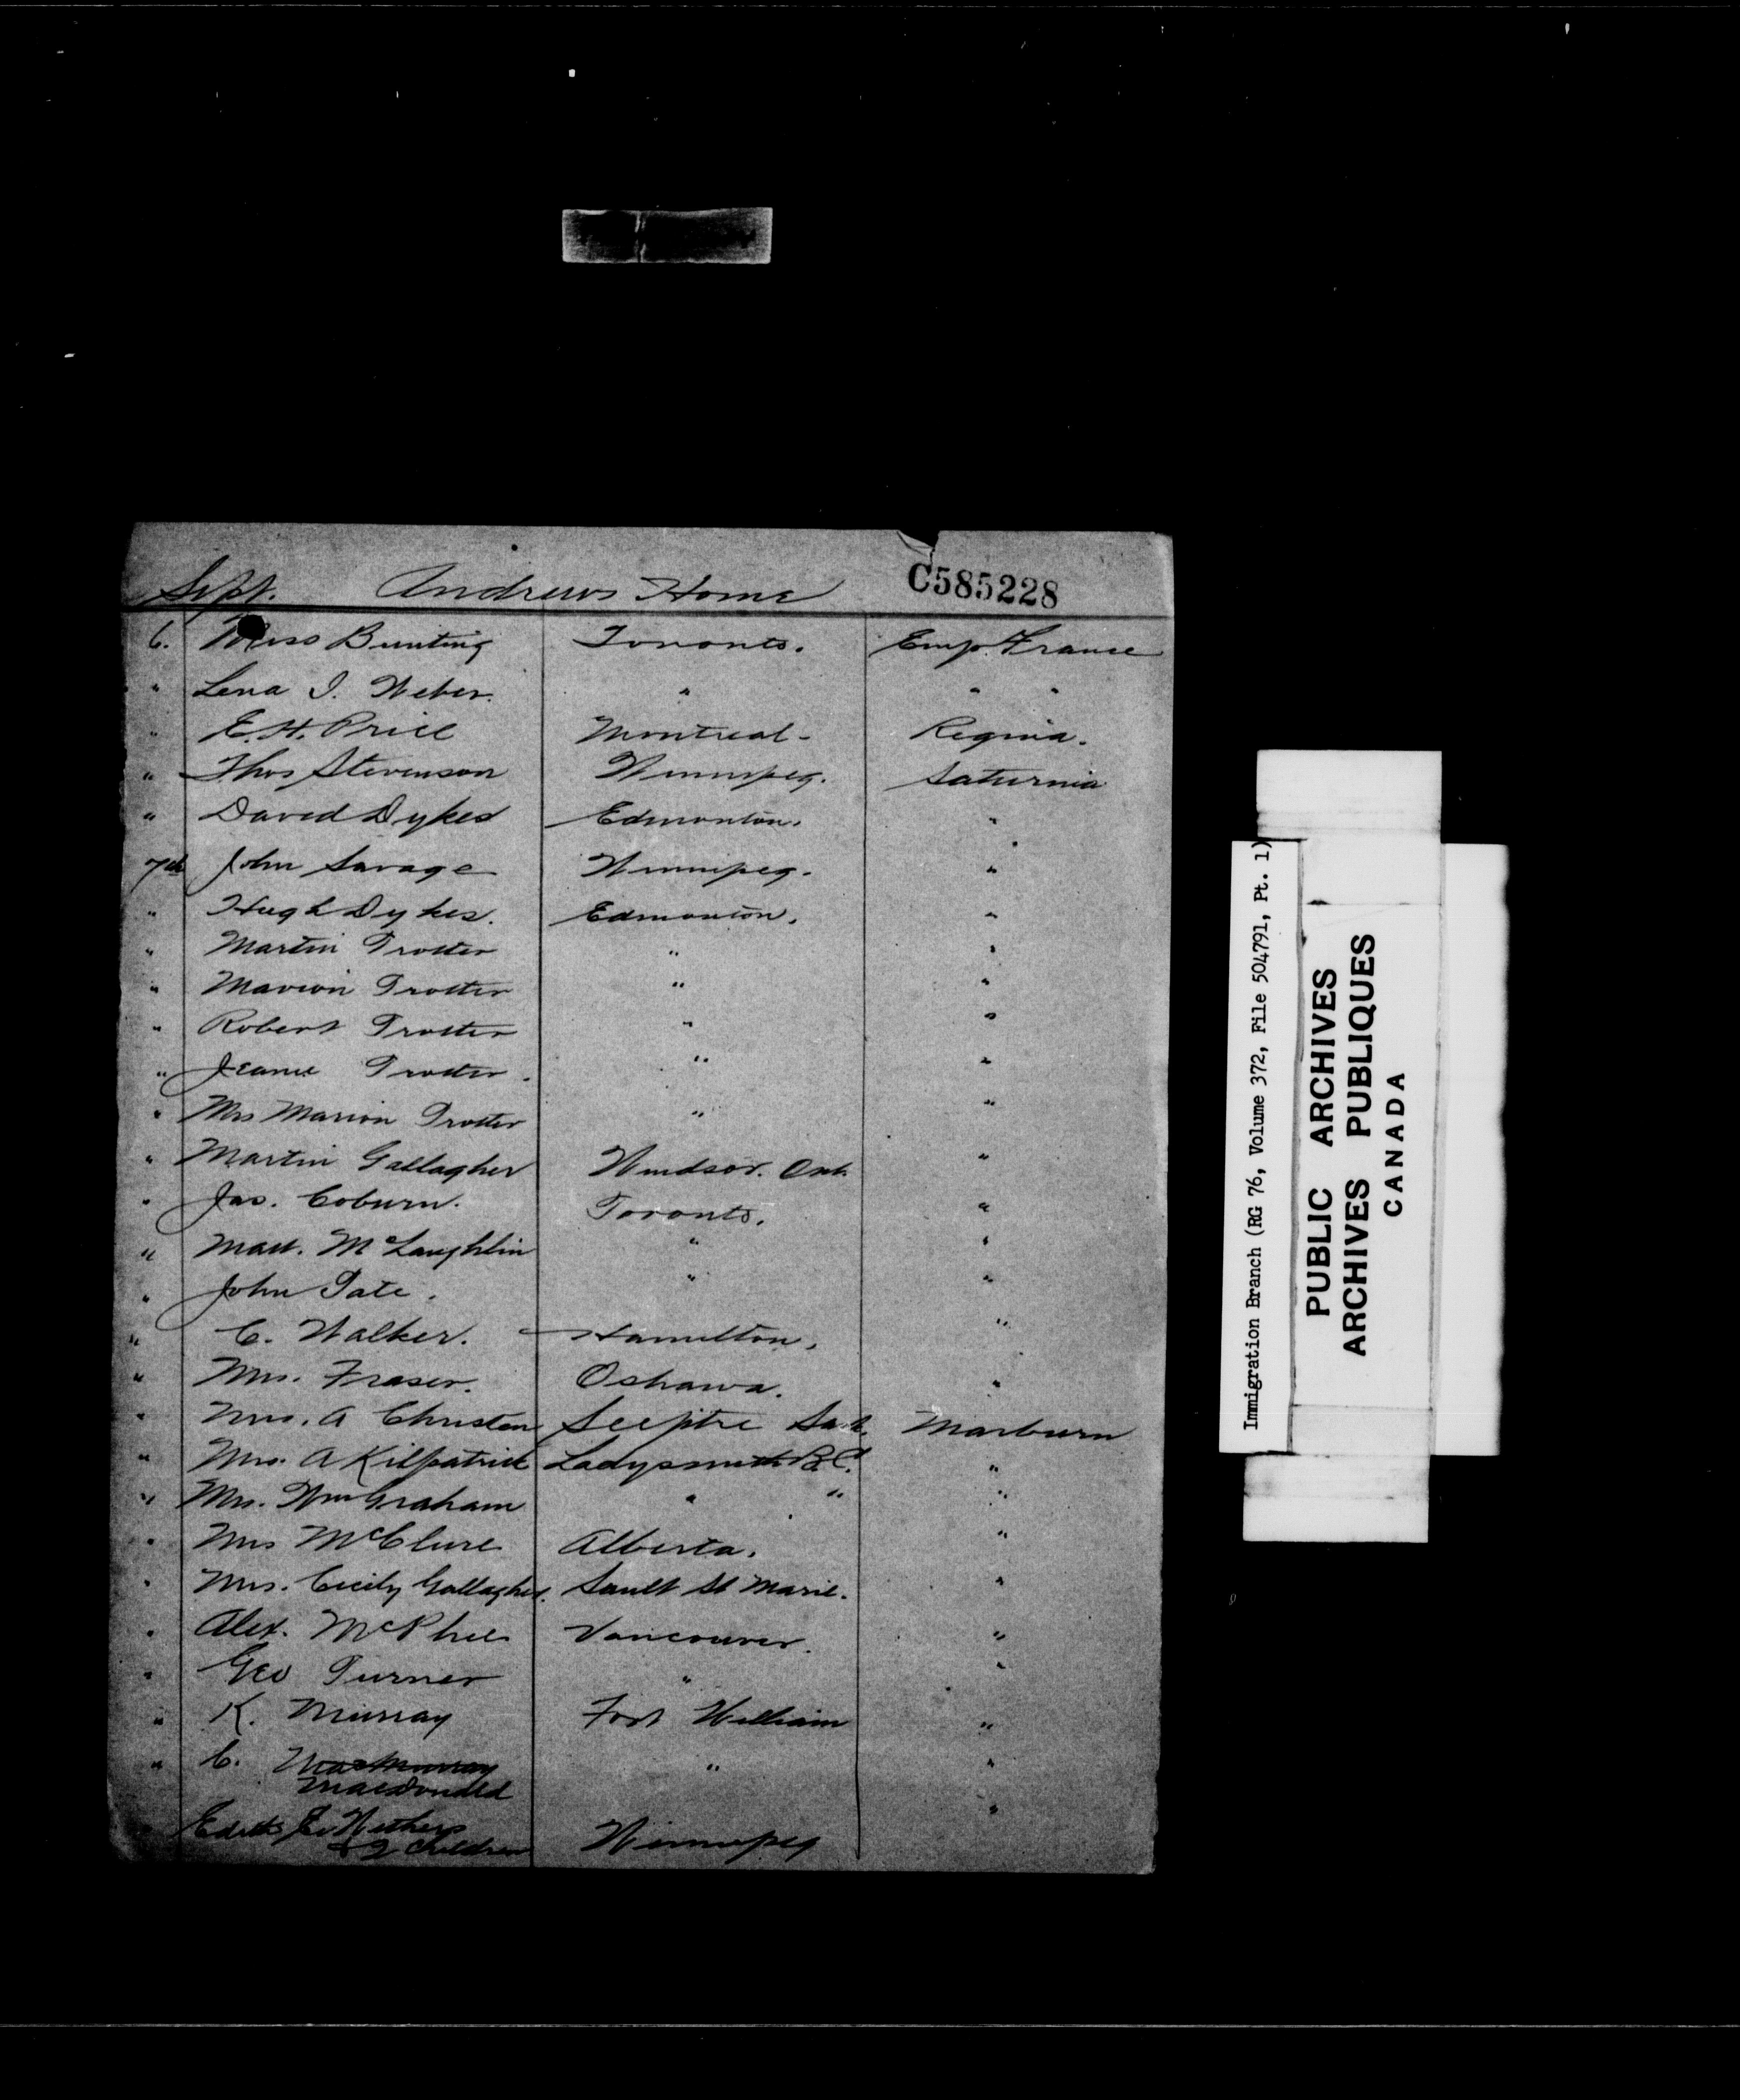 Sept. Andrews Home C585228
6. Miss Bunting Toronto. Emp. France
" Lena I. Weber. " " "
" E. H. Price Montreal - Regina.
" Thos Stevenson Winnipeg. Saturnia
" David Dykes Edmonton. "
7th John Savage Winnipeg. "
" Hugh Dykes. Edmonton. "
" Martin Trotter " "
" Marion Trotter " "
" Robert Trotter " "
" Jeanie Trotter. " "
" Mrs Marion Trotter " "
" Martin Gallagher Windsor. Ont. "
" Jas. Coburn. Toronto. "
" Matt. McLaughlin " "
" John Tate. " "
" C. Walker. Hamilton. "
" Mrs. Fraser. Oshawa. "
" Mrs. A Christen Sceptre Sask. Marburn
" Mrs. A Kilpatrick Ladysmith B.C. "
" Mrs. Wm Graham " " "
" Mrs McClure Alberta. "
" Mrs. Cicily Gallagher. Sault St Marie. "
" Alex. McPhee Vancouver. "
" Geo Turner " "
" K. Murray Fort William "
" C. MacMurray " "
MacDonald
" Edith E. Withers Winnipeg "
& 2 children
Immigration Branch (RG 76, Volume 372, File 504791, Pt. 1)
PUBLIC ARCHIVES
ARCHIVES PUBLIQUES
CANADA